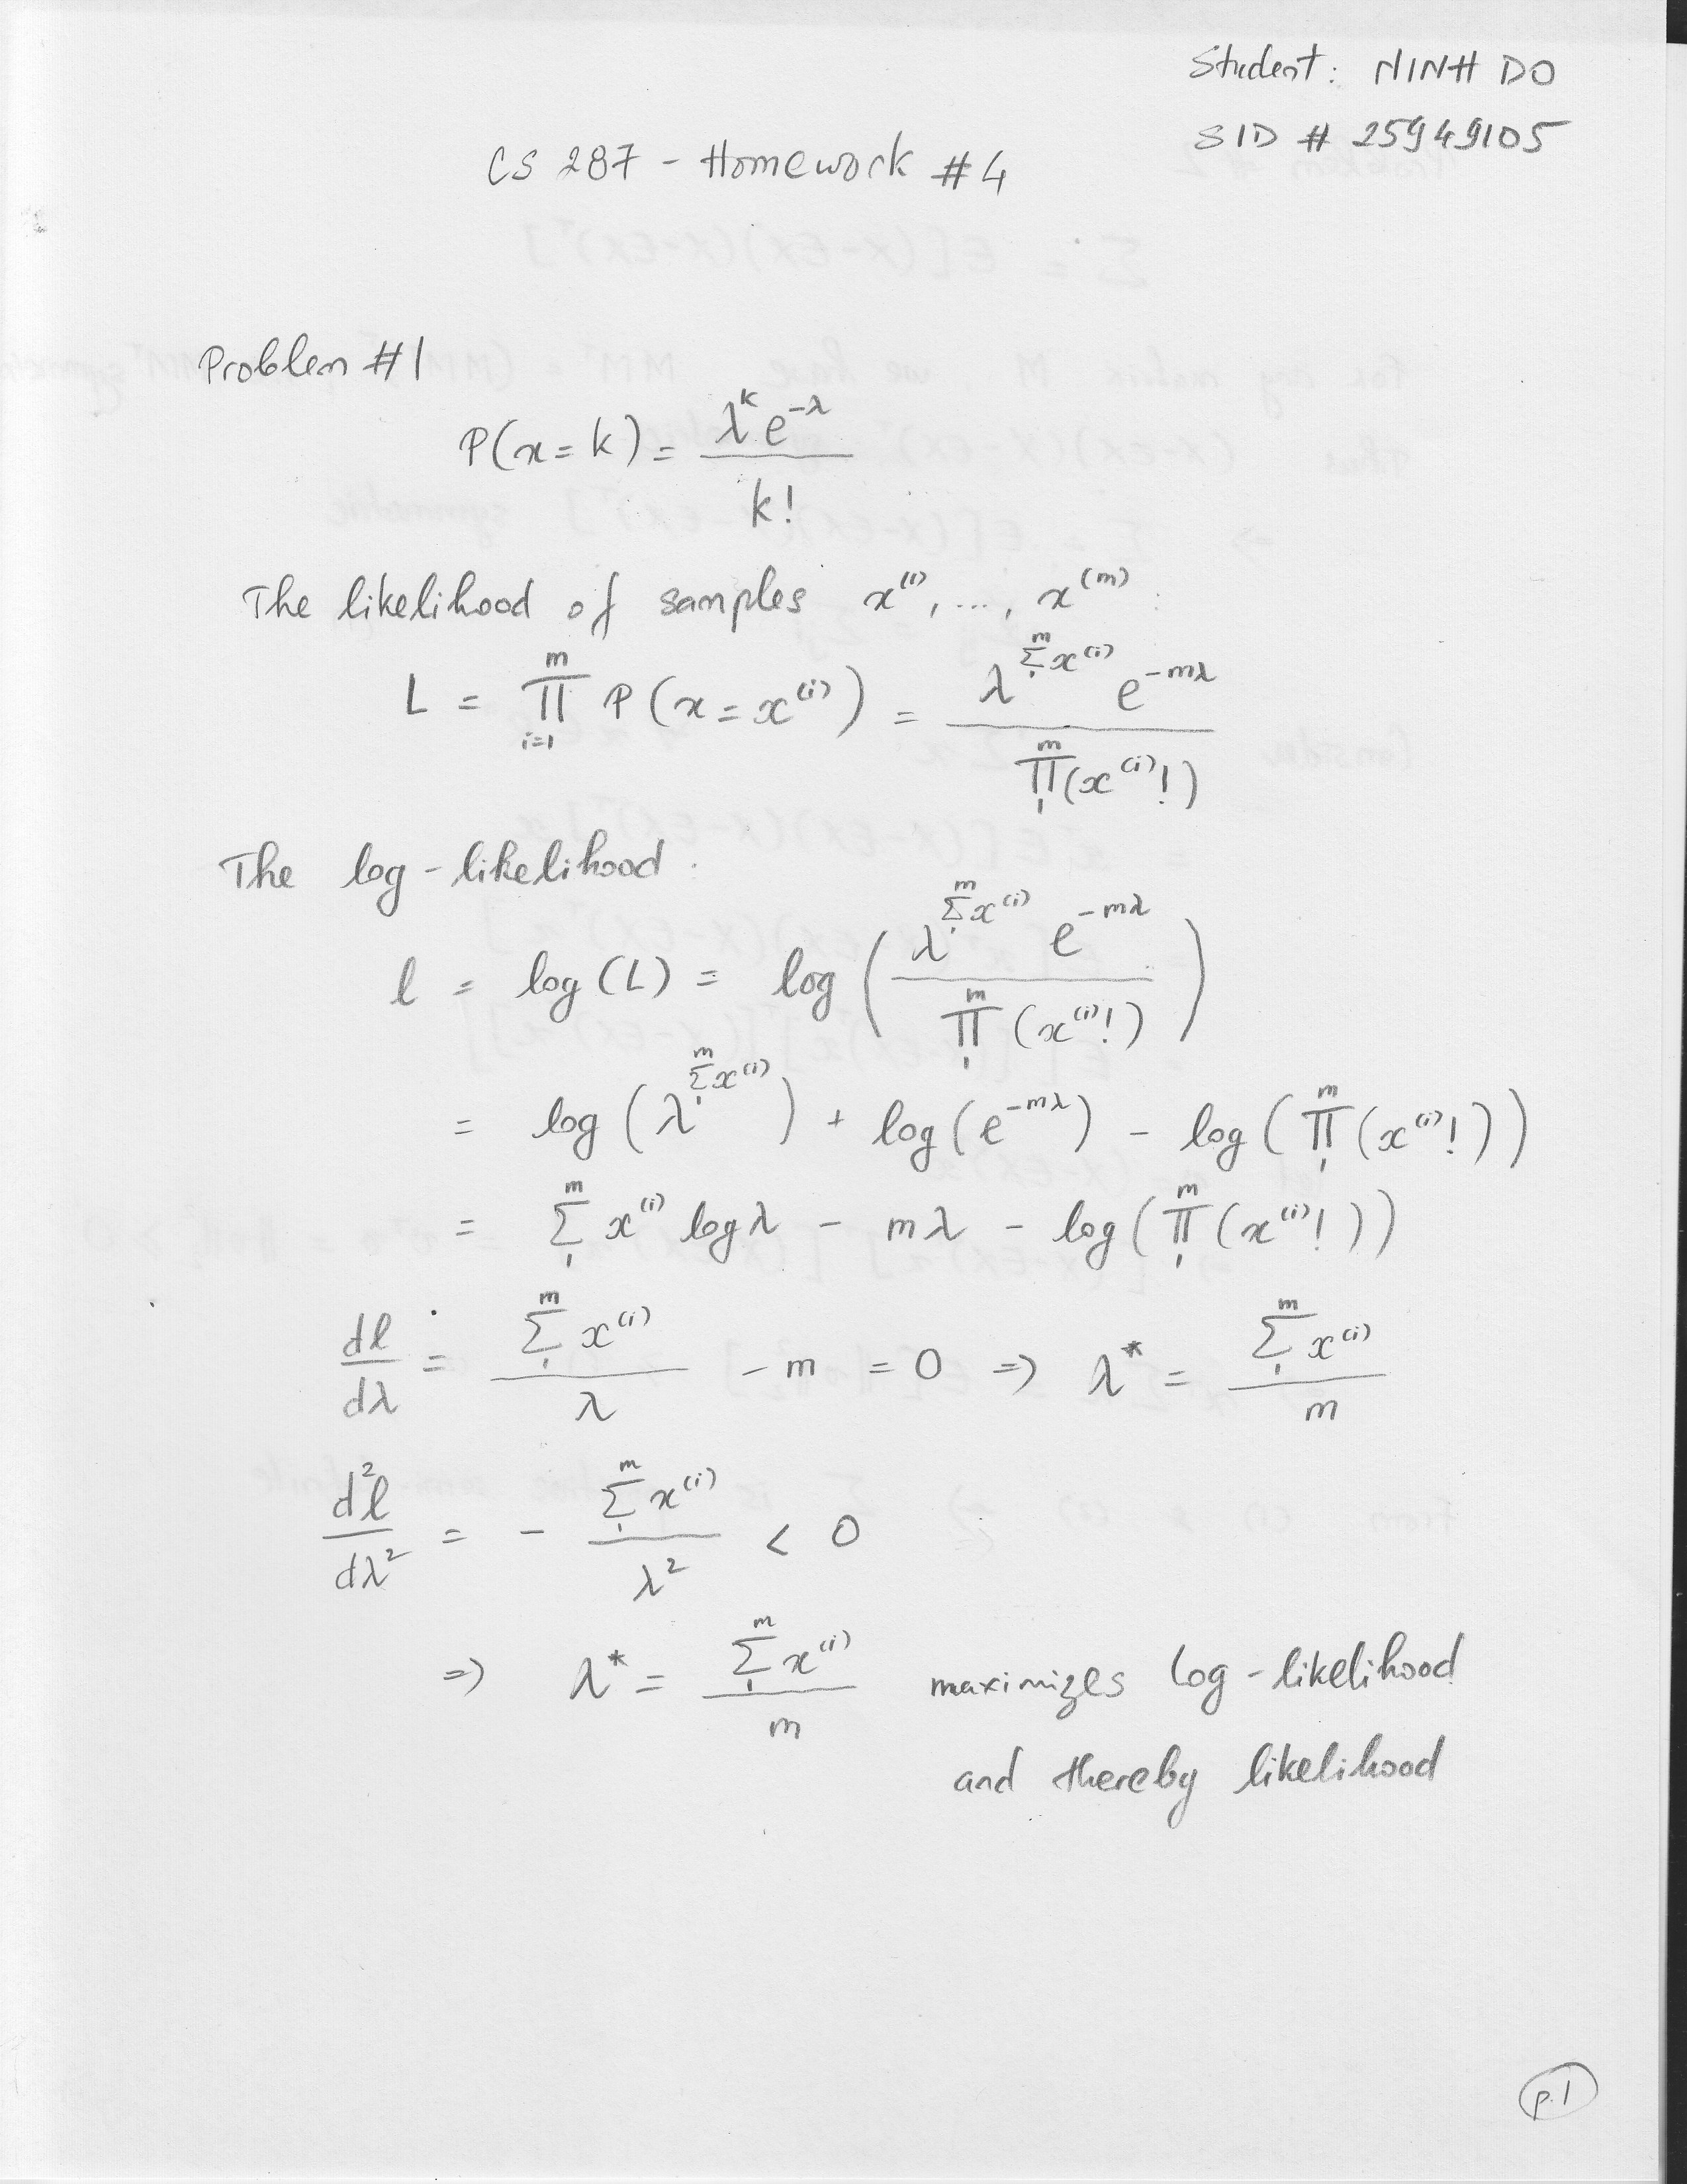 Student: NINH DO
SID # 25949105
CS 287 - Homework #4
Problem #1
P(x=k) = λ^k e^{-λ} / k!
The likelihood of samples x^{(1)}, ..., x^{(m)} :
L = ∏_{i=1}^{m} P(x = x^{(i)}) = λ^{∑_1^m x^{(i)}} e^{-mλ} / ∏_1^m (x^{(i)}!)
The log-likelihood :
l = log(L) = log ( λ^{∑_1^m x^{(i)}} e^{-mλ} / ∏_1^m (x^{(i)}!) )
= log (λ^{∑_1^m x^{(i)}}) + log(e^{-mλ}) - log(∏_1^m (x^{(i)}!))
= ∑_1^m x^{(i)} log λ - mλ - log(∏_1^m (x^{(i)}!))
dl/dλ = ∑_1^m x^{(i)} / λ - m = 0 => λ* = ∑_1^m x^{(i)} / m
d²l/dλ² = - ∑_1^m x^{(i)} / λ² < 0
=> λ* = ∑_1^m x^{(i)} / m maximizes log-likelihood
and thereby likelihood
p.1